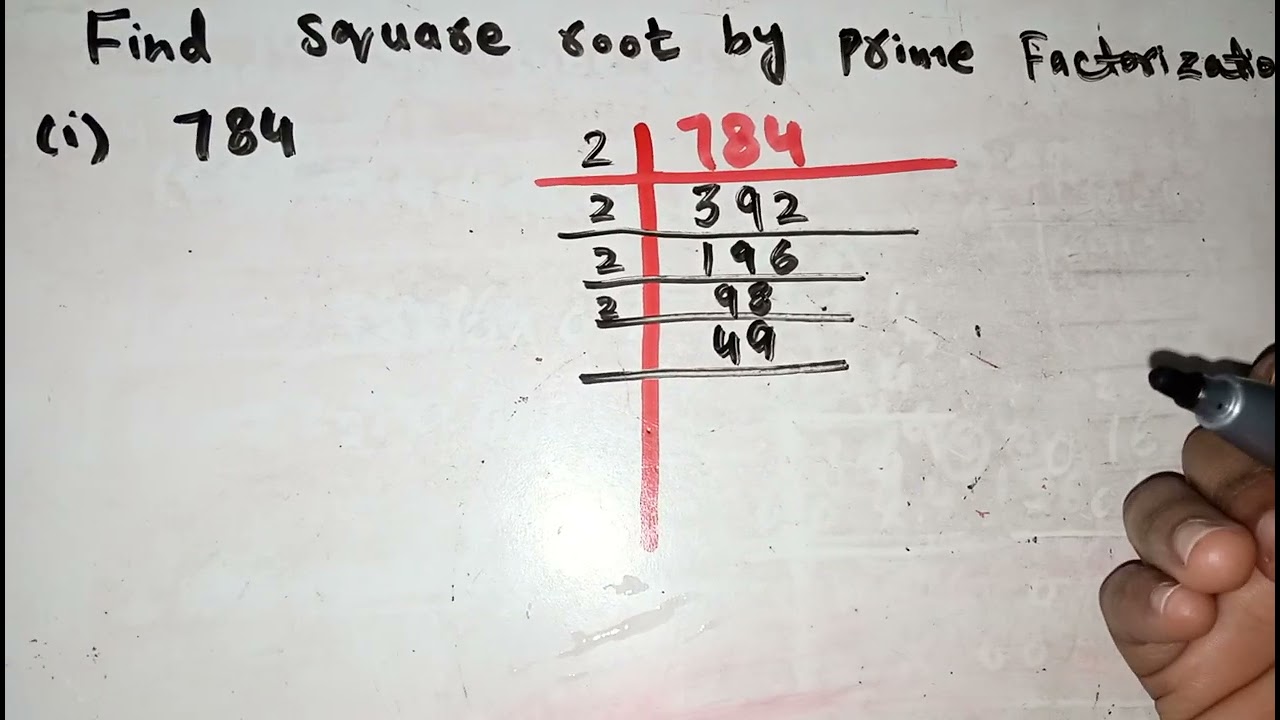 Find square root by prime Factorizatio
(i) 784
2 784
2 392
2 196
2 98
49